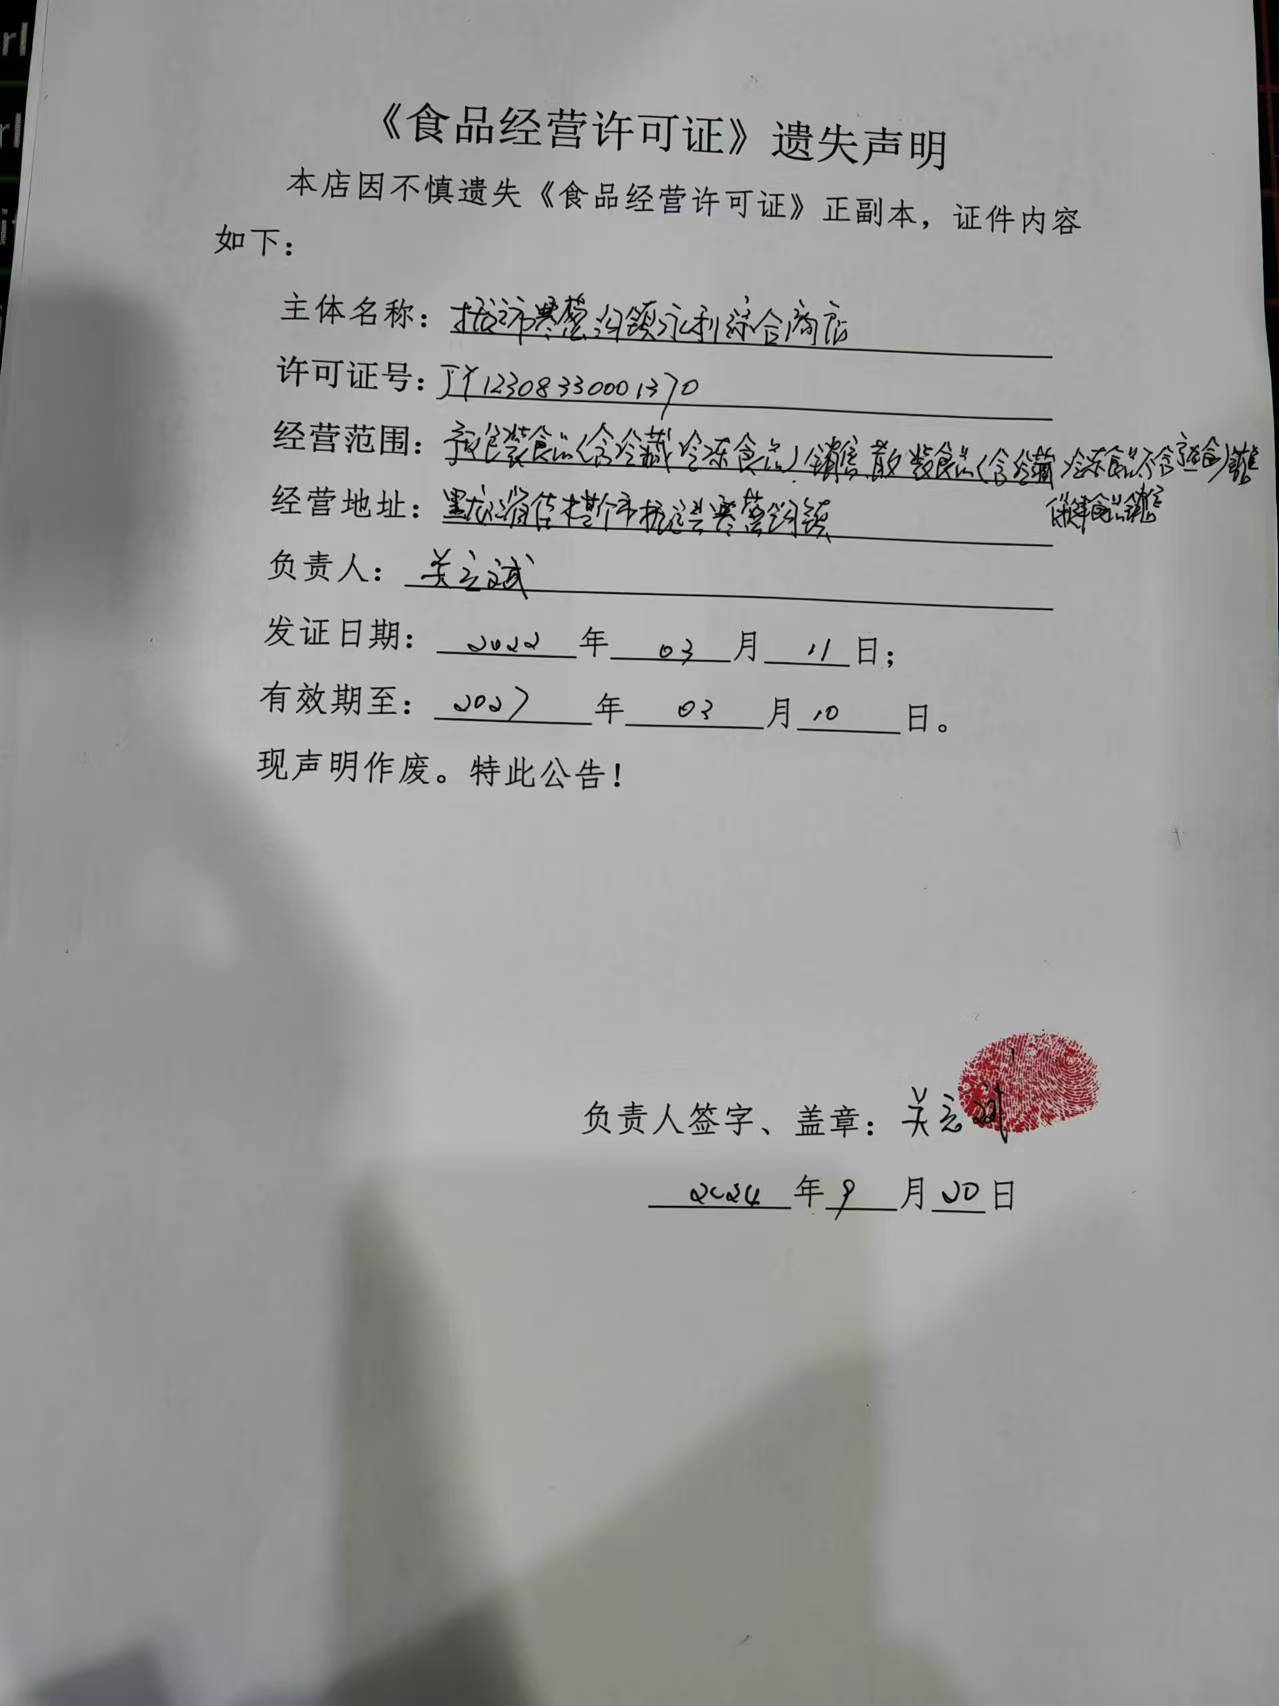 《食品经营许可证》遗失声明
本店因不慎遗失《食品经营许可证》正副本，证件内容
如下：
主体名称：抚远市寒葱沟镇永利综合商店
许可证号：JY12308330001370
经营范围：预包装食品（含冷藏冷冻食品）销售，散装食品（含冷藏冷冻食品不含熟食）销售
保健食品销售
经营地址：黑龙江省佳木斯市抚远县寒葱沟镇
负责人：关立斌
发证日期：2022年03月11日；
有效期至：2027年03月10日。
现声明作废。特此公告！
负责人签字、盖章：关立斌
2024年9月20日